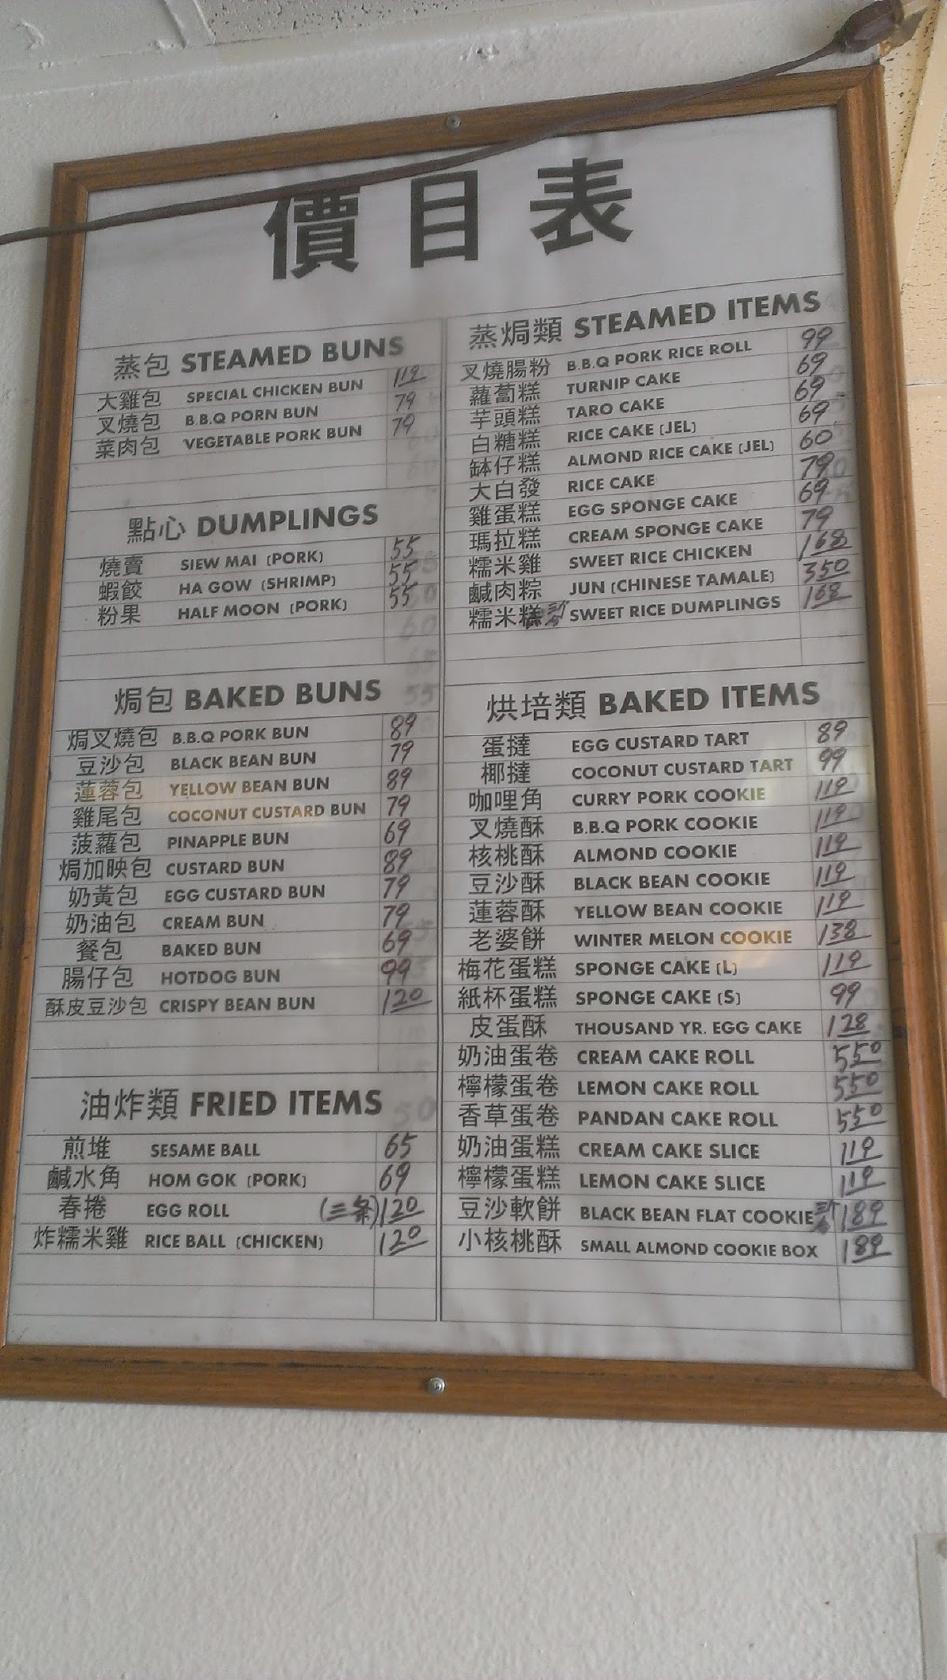 價目表
蒸包 STEAMED BUNS
大雞包 SPECIAL CHICKEN BUN 119
叉燒包 B.B.Q PORN BUN 79
菜肉包 VEGETABLE PORK BUN 79
點心 DUMPLINGS
燒賣 SIEW MAI (PORK) 55
蝦餃 HA GOW (SHRIMP) 55
粉果 HALF MOON (PORK) 55
焗包 BAKED BUNS
焗叉燒包 B.B.Q PORK BUN 89
豆沙包 BLACK BEAN BUN 79
蓮蓉包 YELLOW BEAN BUN 89
雞尾包 COCONUT CUSTARD BUN 79
菠蘿包 PINAPPLE BUN 69
焗加映包 CUSTARD BUN 89
奶黃包 EGG CUSTARD BUN 79
奶油包 CREAM BUN 79
餐包 BAKED BUN 69
腸仔包 HOTDOG BUN 99
酥皮豆沙包 CRISPY BEAN BUN 120
油炸類 FRIED ITEMS
煎堆 SESAME BALL 65
鹹水角 HOM GOK (PORK) 69
春捲 EGG ROLL (三条) 120
炸糯米雞 RICE BALL (CHICKEN) 120
蒸焗類 STEAMED ITEMS
叉燒腸粉 B.B.Q PORK RICE ROLL 99
蘿蔔糕 TURNIP CAKE 69
芋頭糕 TARO CAKE 69
白糖糕 RICE CAKE (JEL) 69
缽仔糕 ALMOND RICE CAKE (JEL) 60
大白發 RICE CAKE 79
雞蛋糕 EGG SPONGE CAKE 69
瑪拉糕 CREAM SPONGE CAKE 79
糯米雞 SWEET RICE CHICKEN 168
鹹肉粽 JUN (CHINESE TAMALE) 350
糯米糕 SWEET RICE DUMPLINGS 168
烘培類 BAKED ITEMS
蛋撻 EGG CUSTARD TART 89
椰撻 COCONUT CUSTARD TART 99
咖哩角 CURRY PORK COOKIE 119
叉燒酥 B.B.Q PORK COOKIE 119
核桃酥 ALMOND COOKIE 119
豆沙酥 BLACK BEAN COOKIE 119
蓮蓉酥 YELLOW BEAN COOKIE 119
老婆餅 WINTER MELON COOKIE 138
梅花蛋糕 SPONGE CAKE (L) 119
紙杯蛋糕 SPONGE CAKE (S) 99
皮蛋酥 THOUSAND YR. EGG CAKE 128
奶油蛋卷 CREAM CAKE ROLL 550
檸檬蛋卷 LEMON CAKE ROLL 550
香草蛋卷 PANDAN CAKE ROLL 550
奶油蛋糕 CREAM CAKE SLICE 119
檸檬蛋糕 LEMON CAKE SLICE 119
豆沙軟餅 BLACK BEAN FLAT COOKIE 189
小核桃酥 SMALL ALMOND COOKIE BOX 189